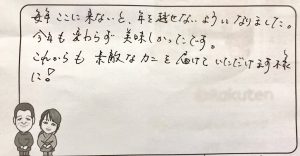 毎年ここに来ないと、年を越せないようになりました。
今年も変わらず美味しかったです。
これからも素敵なカニを届けていただけます様
に!